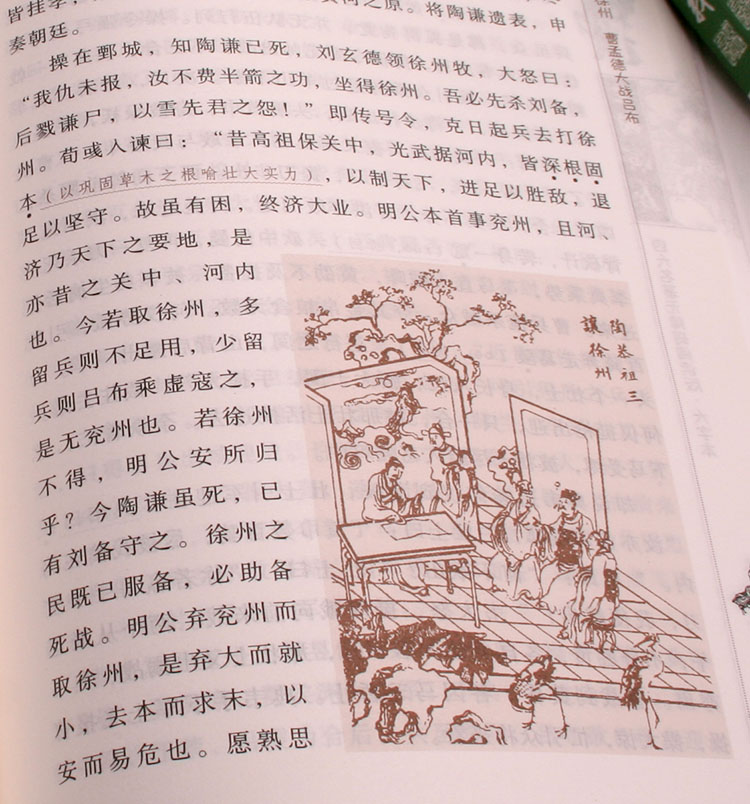 皆挂孝
之原。将陶谦遗表，申
奏朝廷。
操在鄄城，知陶谦已死，刘玄德领徐州牧，大怒曰：
“我仇未报，汝不费半箭之功，坐得徐州。吾必先杀刘备，
后戮谦尸，以雪先君之怨！”即传号令，克日起兵去打徐
州。荀彧入谏曰：“昔高祖保关中，光武据河内，皆深根固
本（以巩固草木之根喻壮大实力），以制天下，进足以胜敌，退
足以坚守。故虽有困，终济大业。明公本首事兖州，且河、
济乃天下之要地，是
亦昔之关中、河内
也。今若取徐州，多
留兵则不足用，少留
兵则吕布乘虚寇之，
是无兖州也。若徐州
不得，明公安所归
乎？今陶谦虽死，已
有刘备守之。徐州之
民既已服备，必助备
死战。明公弃兖州而
取徐州，是弃大而就
小，去本而求末，以
安而易危也。愿熟思
陶恭祖三
让徐州
徐州 曹孟德大战吕布